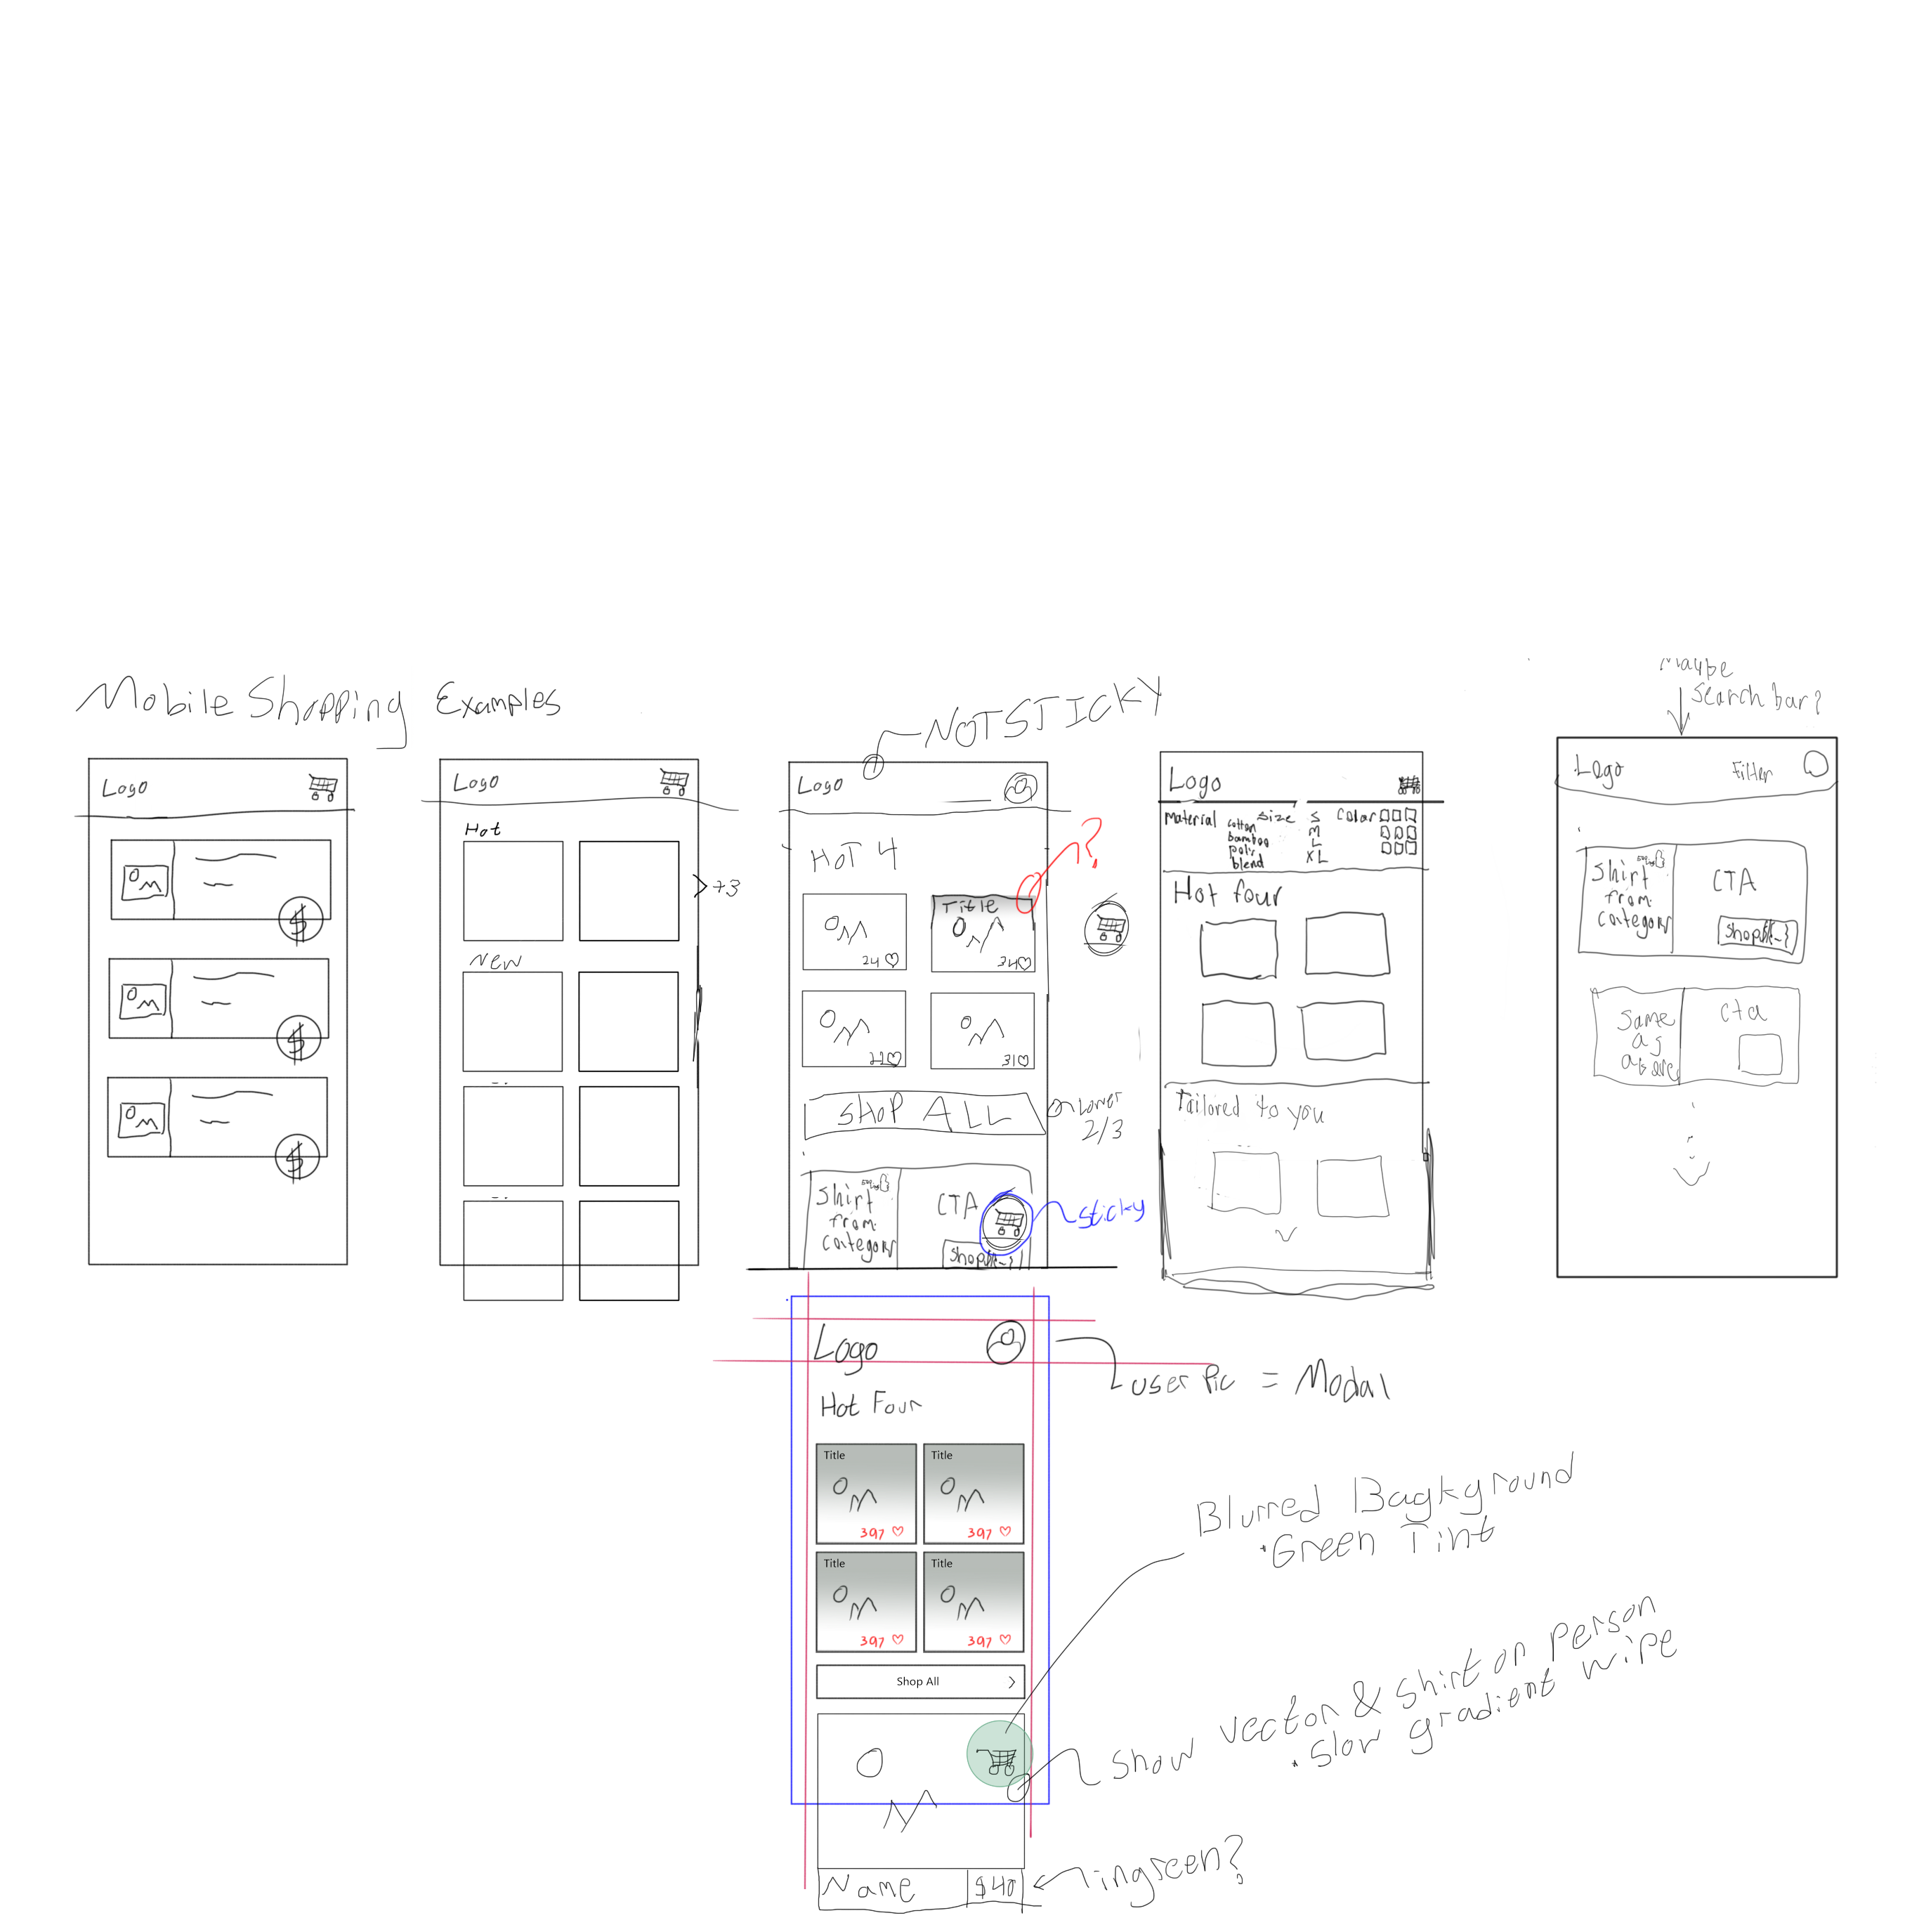 Mobile Shopping Examples
NOT STICKY
Maybe
Search bar?
Logo
$
$
$
Logo
Hot
>+3
New
Logo
HOT 4
?
Title
24
34
22
31
SHOP ALL
Lower
2/3
Shirt
from
category
CTA
Shop
Sticky
Logo
Material
cotton
bamboo
poly
blend
size
S
M
L
XL
Color
Hot four
Tailored to you
Logo
Filter
Shirt
from
category
CTA
Shop
Same
as
above
Cta
Logo
User Pic = Modal
Hot Four
Title
397
Title
397
Title
397
Title
397
Shop All >
Blurred Background
• Green Tint
Show vector & shirt on person
• Slow gradient wipe
Name
$40